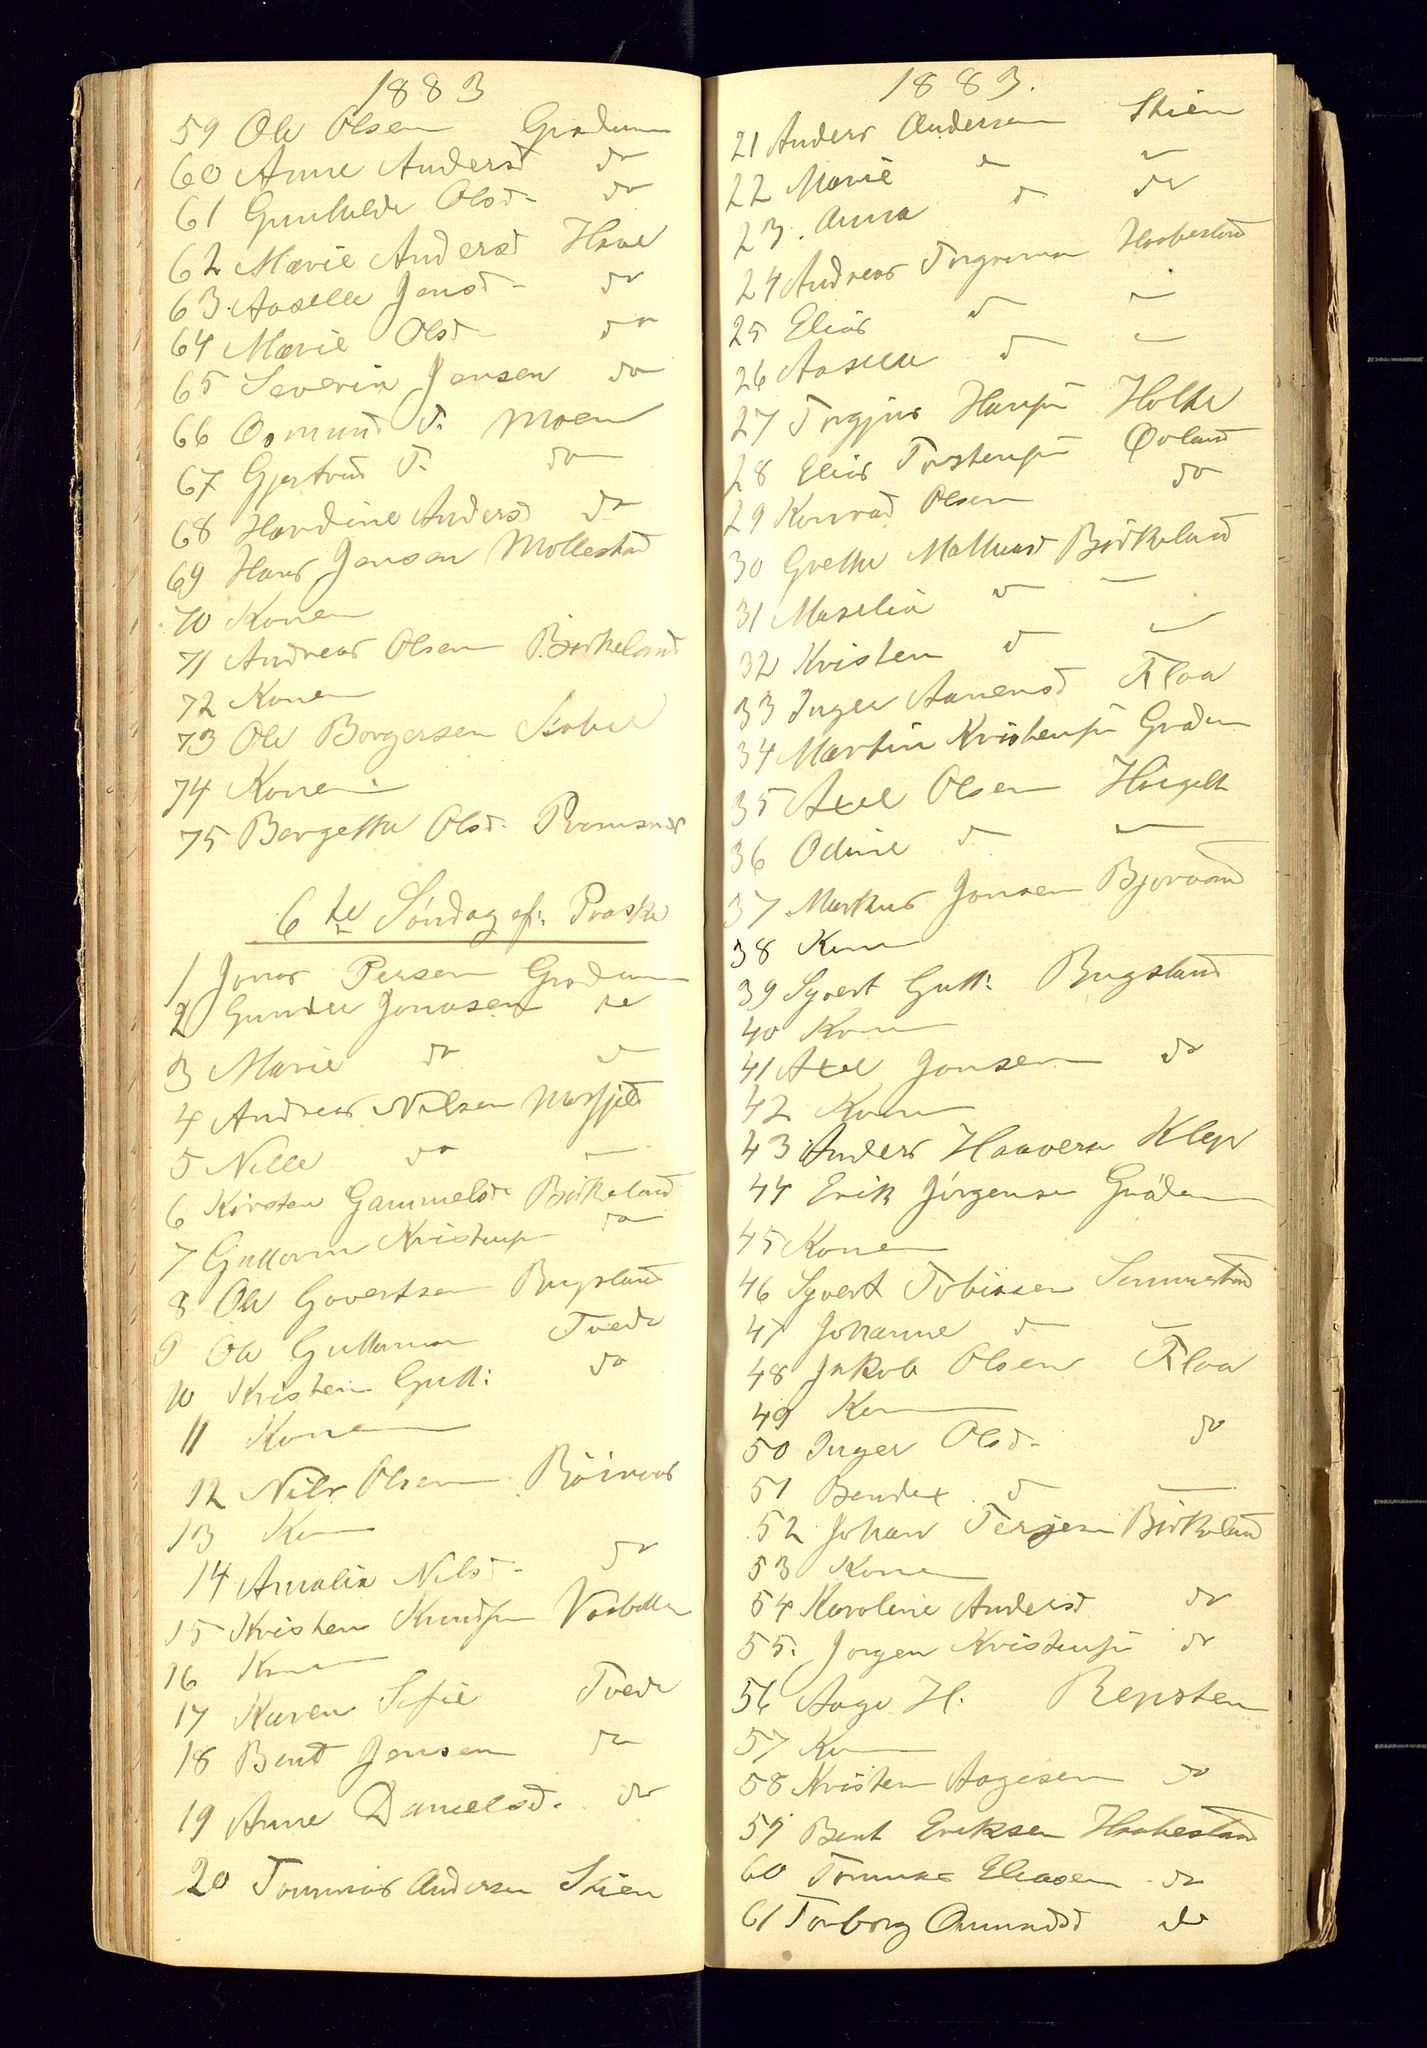 1883
59 Ole Olsen Gradum
60 Anne Andersd do
61 Gunhilde Olsd- do
62 Marie Andersd Have
63. Aaselle Jensd- do
64 Marie Olsd- do
65 Severin Jensen do
66 Osmund T. Moen
67 Gjertrud T. do
68 Hardine Andersd do
69 Hans Jensen Mollestad
70 Konen
71 Andreas Olsen Birkeland
72 Konen
73 Ole Borgersen
74 Konen
75 Bergethe Olsd-
6te Søndag ef: Paaske
1 Jonas Persen Gradum
2 Gunder Jonasen do
3 Marie do -
4 Andreas Nilsen
5 Nille do -
6 Kirsten Gammelsd Birkeland
7 Guttorm Kristensn do
8 Ole Govertsen Bugsland
9 Ole Guttormsn Tvede
10 Kristen Gutt: do
11 Konen
12 Nils Olsen
13 Kon
14 Amalia Nilsd- do
15 Kristen Knudsn
16 Kon
17 Karen Sofie Tvede
18 Bent Jensen do
19 Anne Danielsd. do
20 Tommas Andersen Stien
1883.
21 Anders Andersen Stien
22 Marie d -
23. Anna d do
24 Andreas Torgrimsn Haabestad
25 Elias d -
26 Aaselle d -
27 Torgjus Hansn Holte
28 Elias Torstensn
29 Konrad Olsen do
30 Grethe Mathiasd Birkeland
31 Maselia d -
32 Kristen d -
33 Inger Aanensd Flaa
34 Martin Kristensn Gradum
35 Axel Olsen
36 Odine d -
37 Markus Jensen
38 Kon
39 Syvert Gutt: Bugsland
40 Kon
41 Axel Jonsen do
42 Kon
43 Anders Haavorsn Klep
44 Erik Jørgensn Gradum
45 Konen
46 Syvert Tobiasen
47 Johanne d -
48 Jakob Olsen Flaa
49 Kon
50 Inger Olsd- do
51 Bendex d -
52 Johan Terjesn Birkeland
53 Konen
54 Karoline Andersd do
55. Jørgen Kristensn do
56 Aage H. Repsten
57 Kon
58 Kristen Aagesen do
59 Bent Eriksen Haabestad
60 Tommas Eliasen do
61 Torborg Omundsd do